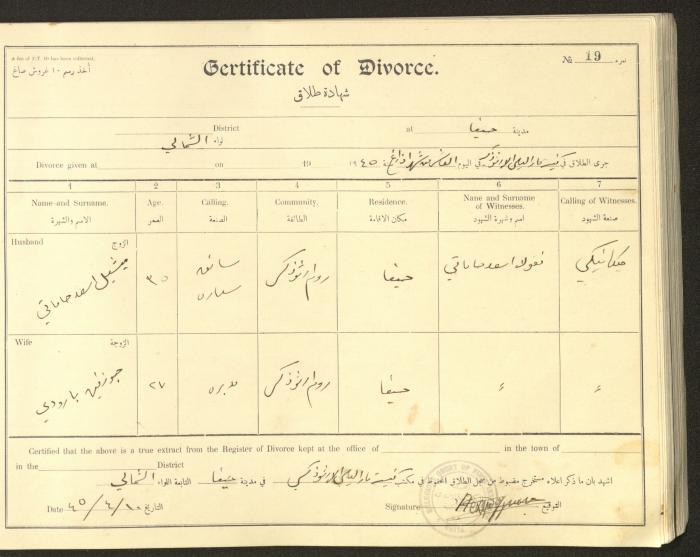 A fee of P.T. 10 has been collected.
أخذ رسم ١٠ غروش صاغ
Certificate of Divorce.
شهادة طلاق
№ 19 نمره
District at مدينة حيفا
لواء الشمالي
Divorce given at on 19
جرى الطلاق في كنيسة مار الياس الارثوذكس في اليوم العاشر من شهر سنة ١٩٤٥
1 2 3 4 5 6 7
Name and Surname. Age. Calling. Community. Residence. Name and Surname of Witnesses. Calling of Witnesses.
الاسم والشهرة العمر الصنعة الطائفة مكان الاقامة اسم وشهرة الشهود صنعة الشهود
Husband الزوج
ميشيل اسعد حاماتي ٣٥ سائق سياره روم ارثوذكس حيفا نقولا اسعد حاماتي ميكانيكي
Wife الزوجة
جوزفين بارودي ٢٧ روم ارثوذكس حيفا
Certified that the above is a true extract from the Register of Divorce kept at the office of in the town of
in the District
اشهد بان ما ذكر اعلاه مستخرج مضبوط من سجل الطلاق المحفوظ في مكتب كنيسة مار الياس الارثوذكس في مدينة حيفا التابعة اللواء الشمالي
Date ١٠/٤/٤٥ التاريخ Signature التوقيع